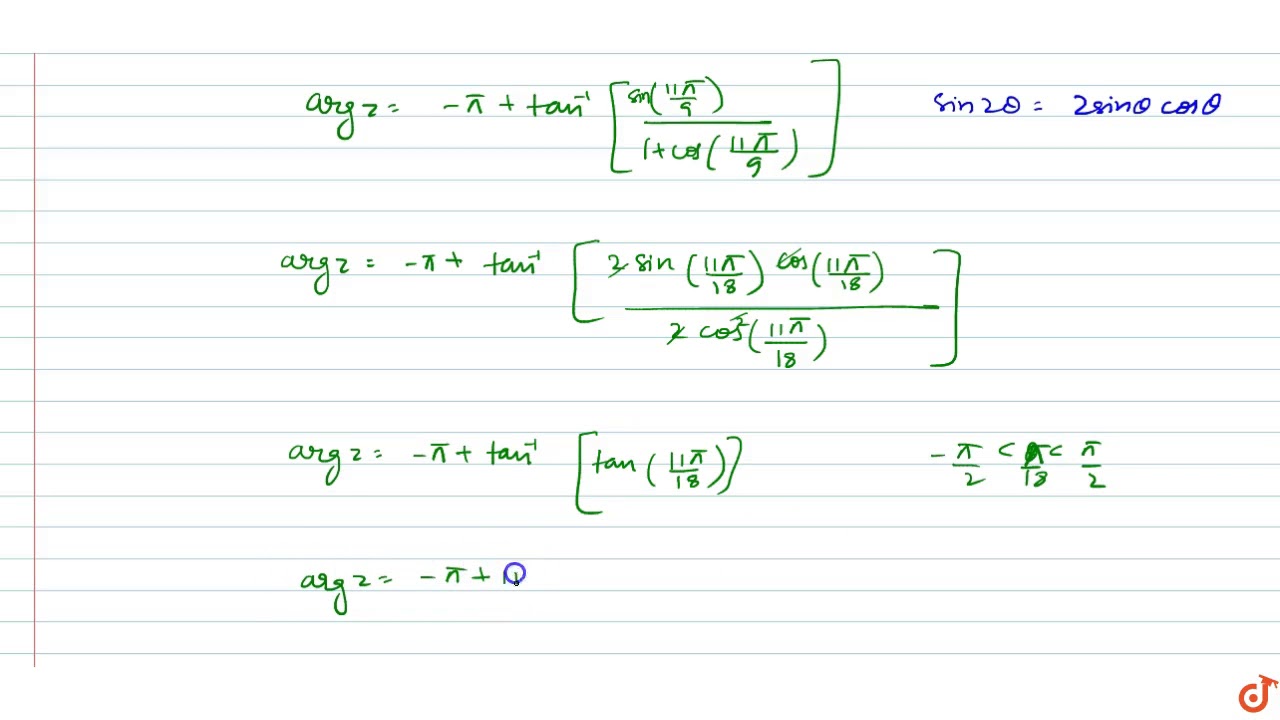 arg z = -π + tan⁻¹ [ sin(11π/9) / 1+cos(11π/9) ] sin2θ = 2sinθ cosθ
arg z = -π + tan⁻¹ [ 2 sin(11π/18) cos(11π/18) / 2 cos²(11π/18) ]
arg z = -π + tan⁻¹ [ tan(11π/18) ] -π/2 < π/18 < π/2
arg z = -π + 11